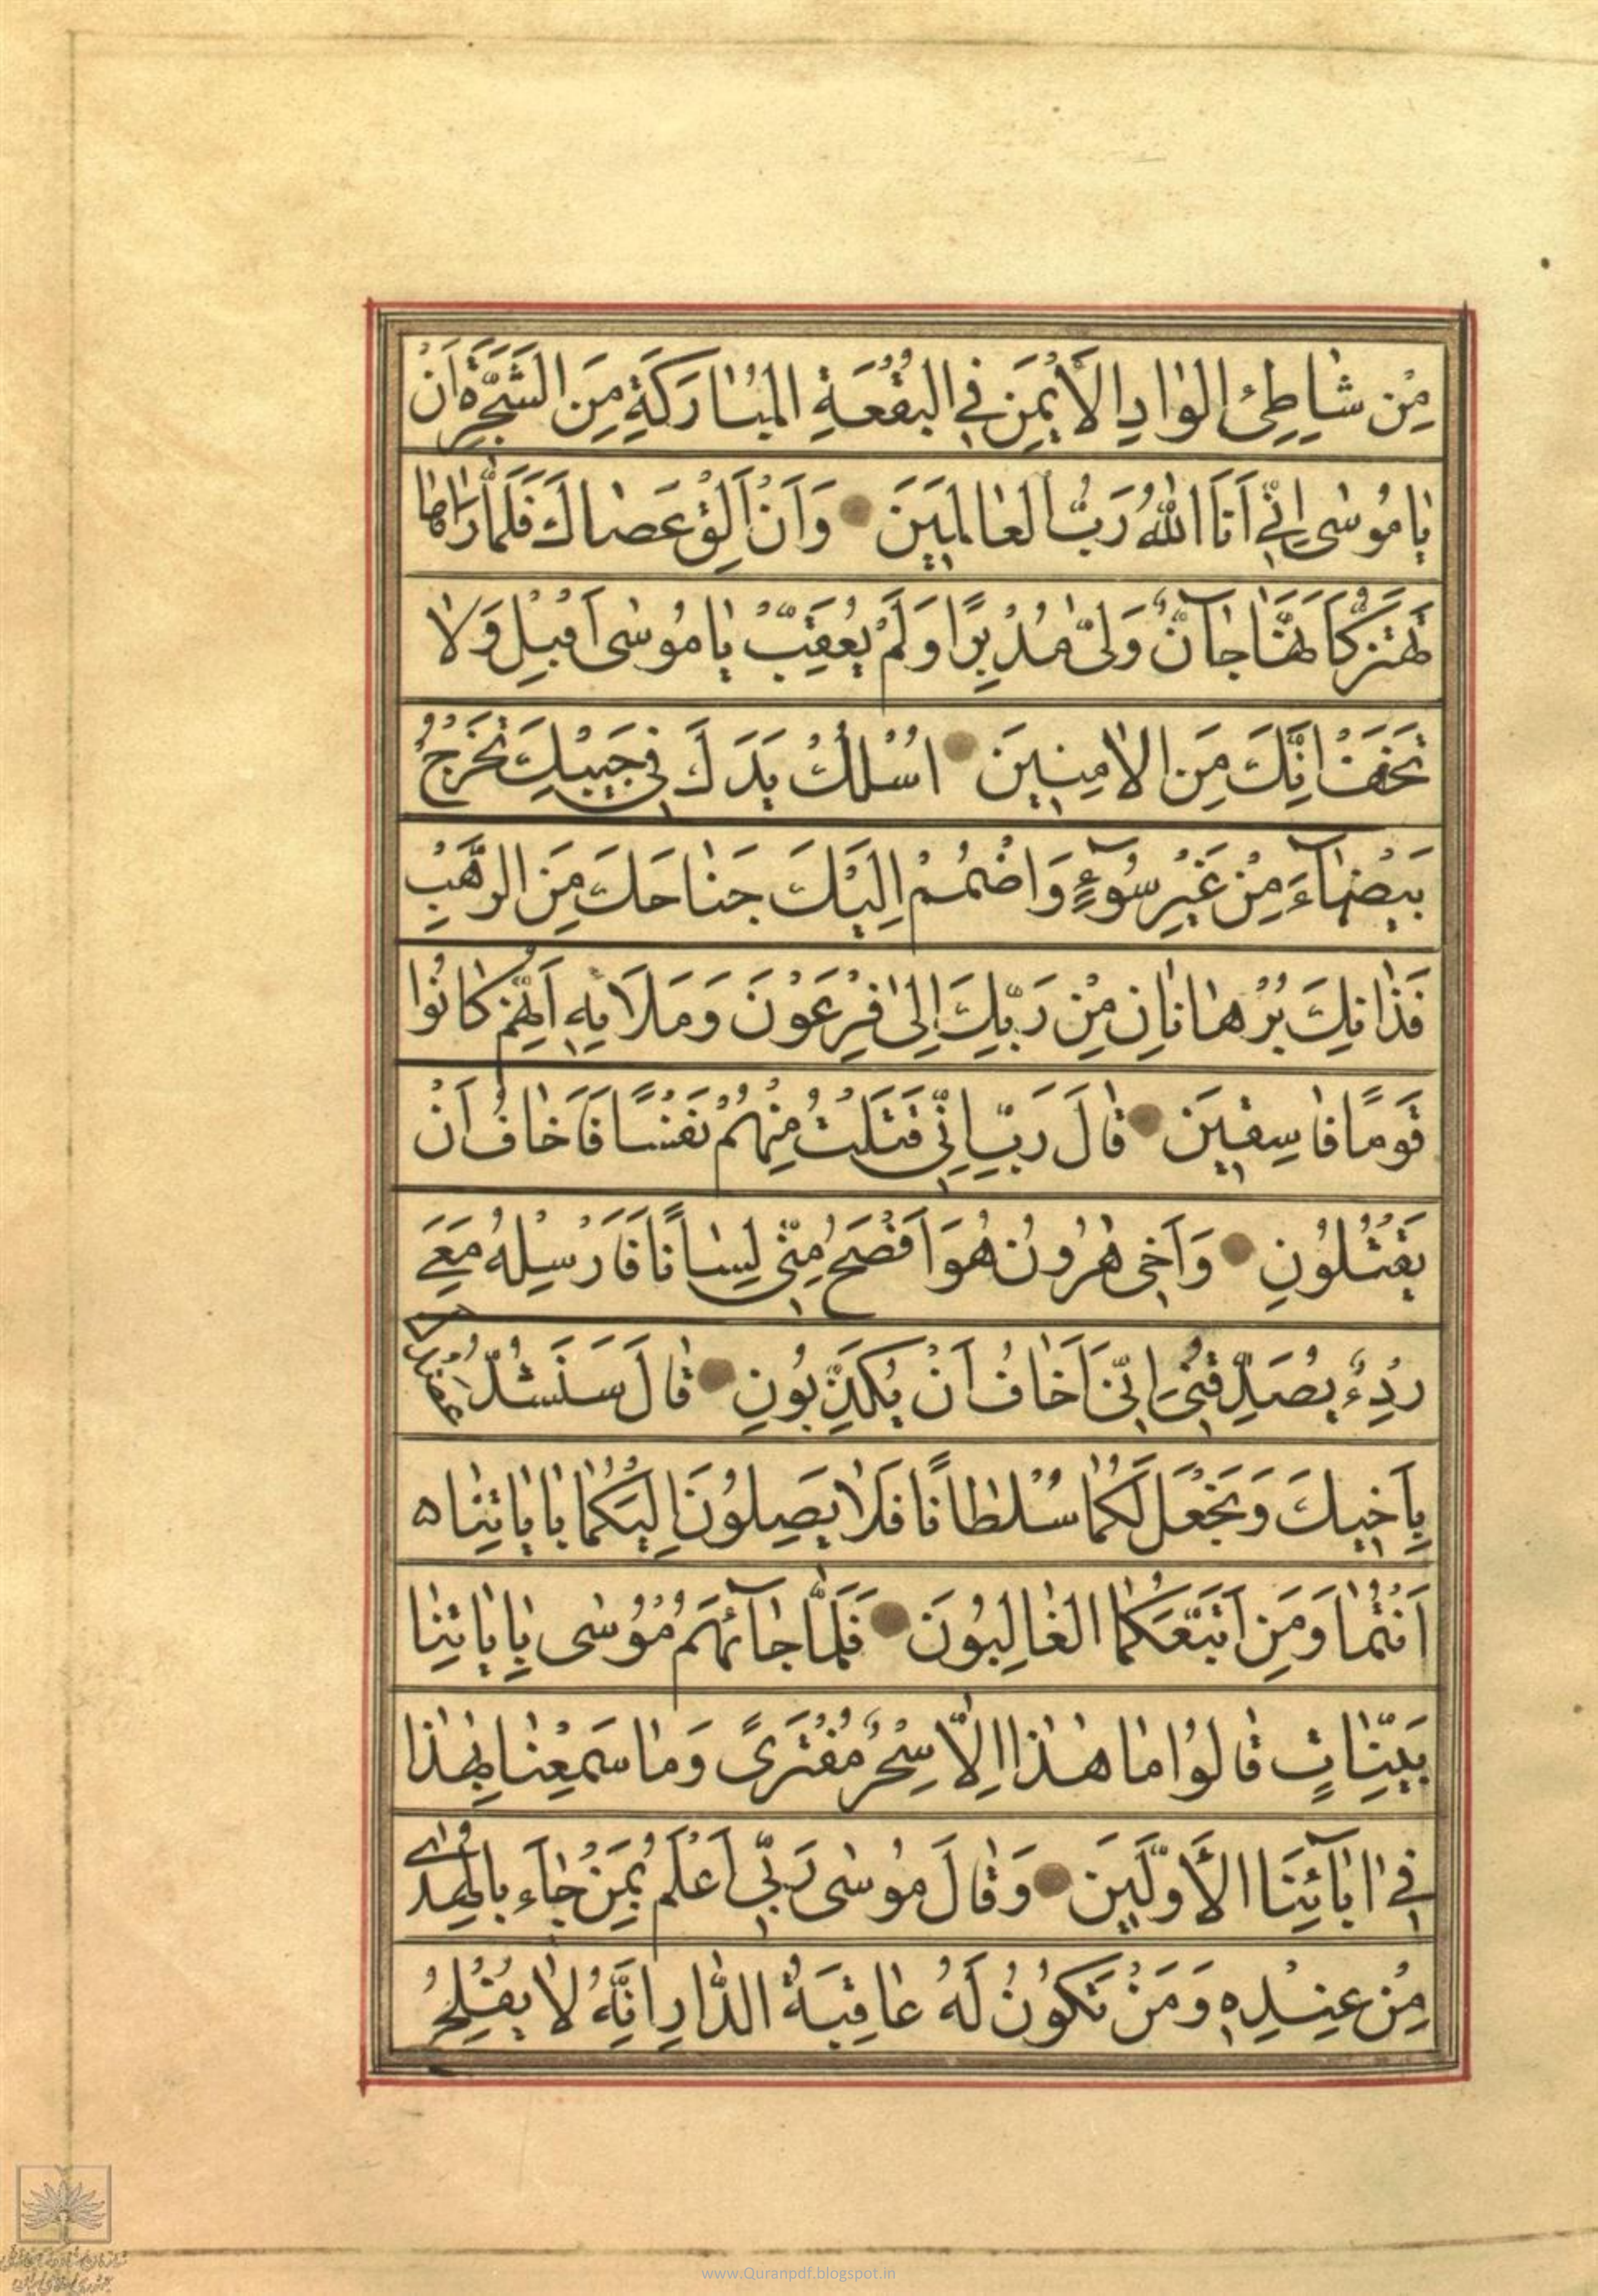 مِنْ شَاطِئِ الْوَادِ الْأَيْمَنِ فِي الْبُقْعَةِ الْمُبَارَكَةِ مِنَ الشَّجَرَةِ اَنْ
يَا مُوسٰى اِنّي اَنَا اللّٰهُ رَبُّ الْعَالَمينَ وَاَنْ اَلْقِ عَصَاكَ فَلَمَّا رَاٰهَا
تَهْتَزُّ كَاَنَّهَا جَآنٌّ وَلّٰى مُدْبِرًا وَلَمْ يُعَقِّبْ يَا مُوسٰى اَقْبِلْ وَلَا
تَخَفْ اِنَّكَ مِنَ الْاٰمِنينَ اُسْلُكْ يَدَكَ في جَيْبِكَ تَخْرُجْ
بَيْضَآءَ مِنْ غَيْرِ سُوٓءٍ وَاضْمُمْ اِلَيْكَ جَنَاحَكَ مِنَ الرَّهْبِ
فَذَانِكَ بُرْهَانَانِ مِنْ رَبِّكَ اِلٰى فِرْعَوْنَ وَمَلَا۟ئِهِ اِنَّهُمْ كَانُوا
قَوْمًا فَاسِقينَ قَالَ رَبِّ اِنّي قَتَلْتُ مِنْهُمْ نَفْسًا فَاَخَافُ اَنْ
يَقْتُلُونِ وَاَخي هٰرُونُ هُوَ اَفْصَحُ مِنّي لِسَانًا فَاَرْسِلْهُ مَعِيَ
رِدْءً يُصَدِّقُني اِنّي اَخَافُ اَنْ يُكَذِّبُونِ قَالَ سَنَشُدُّ عَضُدَكَ
بِاَخيكَ وَنَجْعَلُ لَكُمَا سُلْطَانًا فَلَا يَصِلُونَ اِلَيْكُمَا بِاٰيَاتِنَا ه
اَنْتُمَا وَمَنِ اتَّبَعَكُمَا الْغَالِبُونَ فَلَمَّا جَآئَهُمْ مُوسٰى بِاٰيَاتِنَا
بَيِّنَاتٍ قَالُوا مَا هٰذَا اِلَّا سِحْرٌ مُفْتَرًى وَمَا سَمِعْنَا بِهٰذَا
في اٰبَآئِنَا الْأَوَّلينَ وَقَالَ مُوسٰى رَبّي اَعْلَمُ بِمَنْ جَآءَ بِالْهُدٰى
مِنْ عِنْدِه وَمَنْ تَكُونُ لَهُ عَاقِبَةُ الدَّارِ اِنَّهُ لَا يُفْلِحُ
www.Quranpdf.blogspot.in